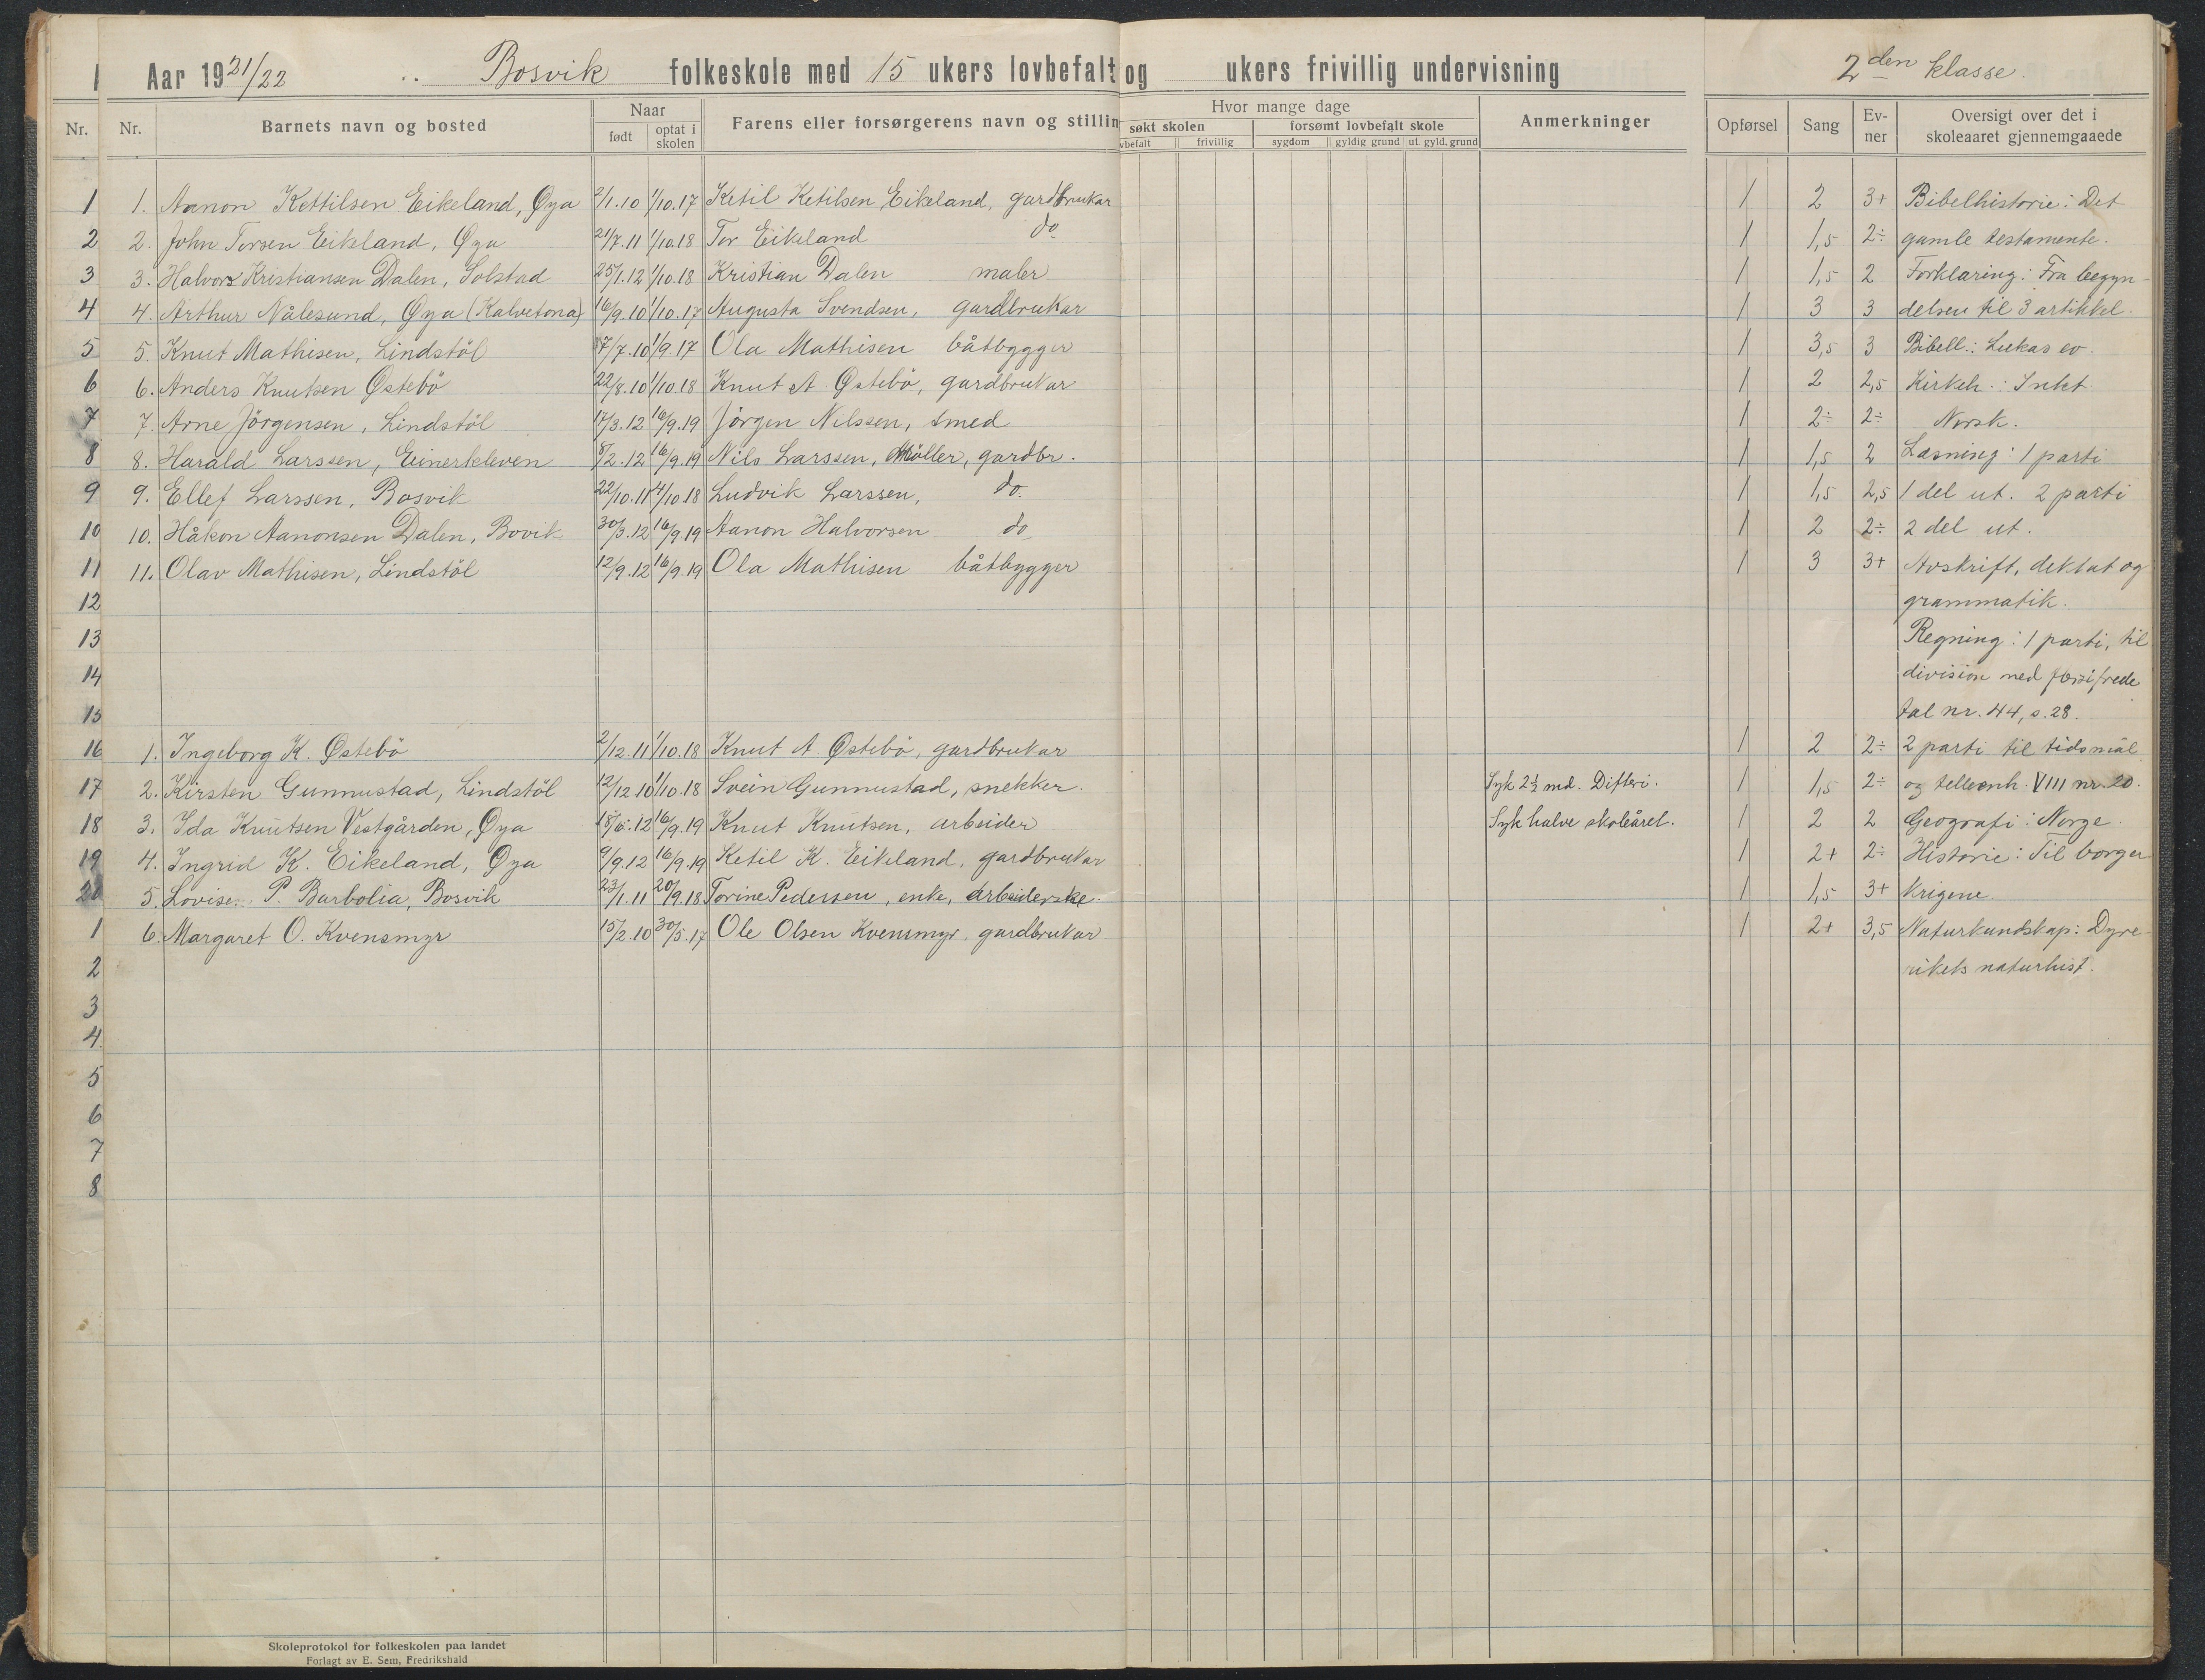 Aar 1921/22 Bosvik folkeskole med 15 ukers lovbefalt og ukers frivillig undervisning 2den klasse.
Nr. Nr. Barnets navn og bosted Naar født optat i skolen Farens eller forsørgerens navn og stillin Hvor mange dage søkt skolen vbefalt frivillig forsømt lovbefalt skole sygdom gyldig grund ut. gyld. grund Anmerkninger Opførsel Sang Ev-ner Oversigt over det i skoleaaret gjennemgaaede
1 1. Aanon Kettilsen Eikeland, Øya 2/1.10 1/10.17 Ketil Ketilsen Eikeland, gardbrukar 1 2 3+ Bibelhistorie: Det
2 2. John Torsen Eikeland, Øya 21/7.11 1/10.18 Tor Eikeland do 1 1,5 2÷ gamle testamente.
3 3. Halvor Kristiansen Dalen, Solstad 25/1.12 1/10.18 Kristian Dalen maler 1 1,5 2 Forklaring: Fra begyn-
4 4. Arthur Nålesund, Øya (Kalvetona) 16/9.10 1/10.17 Augusta Svendsen, gardbrukar 1 3 3 delsen til 3 artikkel.
5 5. Knut Mathisen, Lindstöl 17/7.10 1/9.17 Ola Mathisen båtbygger 1 3,5 3 Bibell.: Lukas ev.
6 6. Anders Knutsen Østebö 22/8.10 1/10.18 Knut A. Østebö, gardbrukar 1 2 2,5 Kirkeh.: Intet.
7 7. Arne Jörgensen, Lindstöl 17/3.12 16/9.19 Jörgen Nilssen, smed 1 2÷ 2÷ Norsk.
8 8. Harald Larssen, Einerkleven 8/2.12 16/9.19 Nils Larssen, Möller, gardbr. 1 1,5 2 Læsning: 1 parti
9 9. Ellef Larssen, Bosvik 22/10.11 4/10.18 Ludvik Larssen, do. 1 1,5 2,5 1 del ut. 2 parti
10 10. Håkon Aanonsen Dalen, Bovik 30/3.12 16/9.19 Aanon Halvorsen do 1 2 2÷ 2 del ut.
11 11. Olav Mathisen, Lindstöl 12/9.12 16/9.19 Ola Mathisen båtbygger 1 3 3+ Avskrift, diktat og
12 grammatik.
13 Regning: 1 parti, til
14 division med
15 tal nr. 44, s. 28.
16 1. Ingeborg K. Østebö 2/12.11 1/10.18 Knut A. Østebö, gardbrukar 1 2 2÷ 2 parti til tidsmål
17 2. Kirsten Gunnustad, Lindstöl 12/12.10 1/10.18 Svein Gunnustad, snekker. Syk 2½ md. Difteri. 1 1,5 2÷ og telleenh. VIII nr. 20.
18 3. Ida Knutsen Vestgården, Øya 18/6.12 16/9.19 Knut Knutsen, arbeider Syk halve skoleåret. 1 2 2 Geografi: Norge.
19 4. Ingrid K. Eikeland, Øya 9/9.12 16/9.19 Ketil K. Eikeland, gardbrukar 1 2+ 2÷ Historie: Til borger
20 5. Lovise P. Barbolia, Bosvik 23/1.11 20/9.18 Torine Pedersen, enke, arbeiderske. 1 1,5 3+ krigene.
1 6. Margaret O. Kvensmyr 15/2.10 30/5.17 Ole Olsen Kvensmyr, gardbrukar 1 2+ 3,5 Naturkundskap: Dyre-
2 rikets naturhist.
3
4
5
6
7
8
Skoleprotokol for folkeskolen paa landet
Forlagt av E. Sem, Fredrikshald